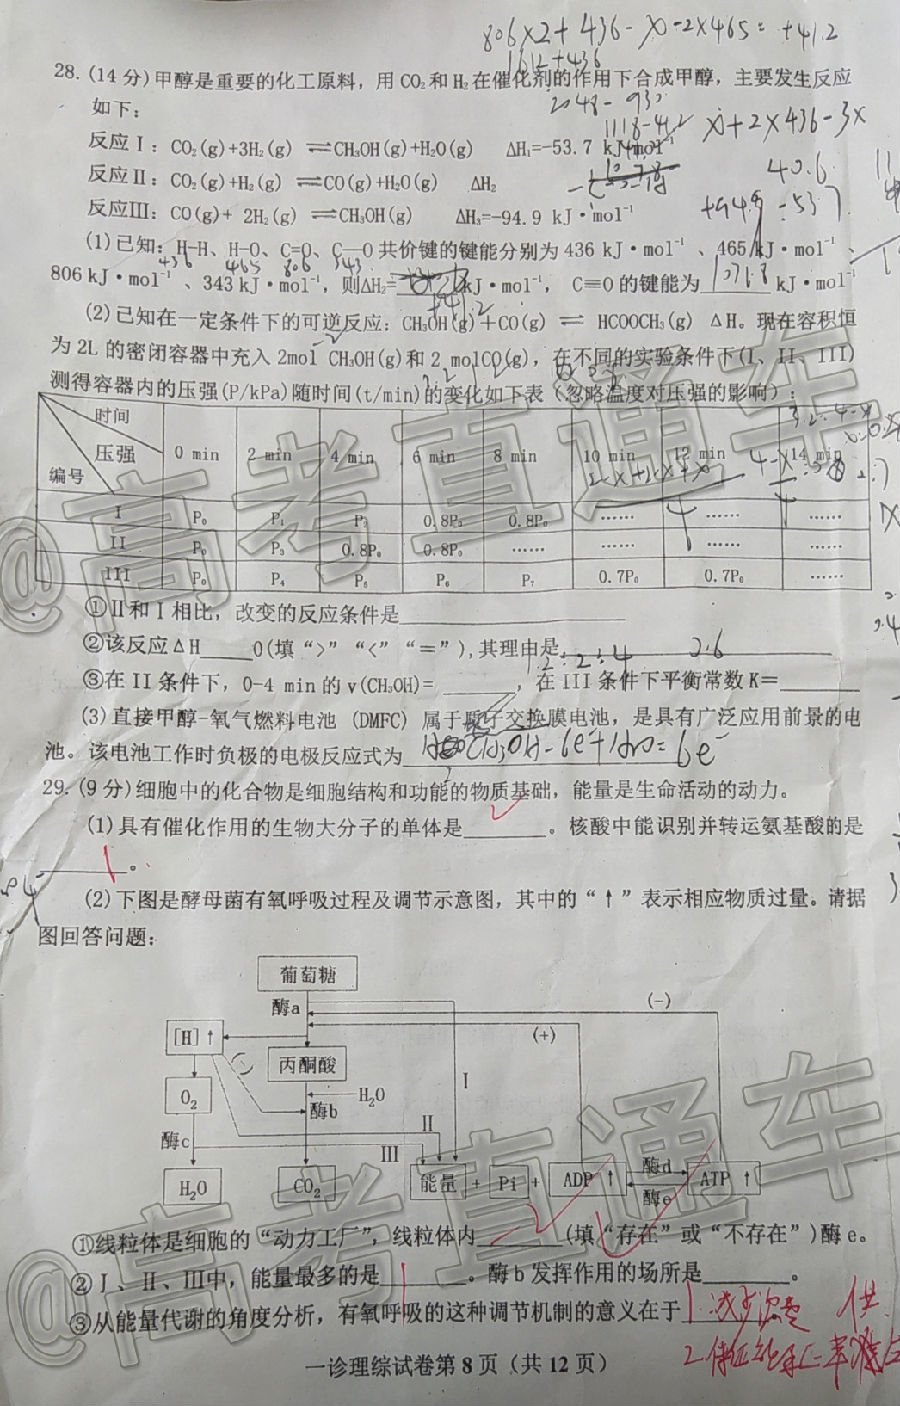 806×2+436-x-2×465=+41.2
1612+436
28.(14分)甲醇是重要的化工原料，用CO₂和H₂在催化剂的作用下合成甲醇，主要发生反应
如下：
2048-930
1118-41.2
x+2×436-3×
反应Ⅰ：CO₂(g)+3H₂(g) ⇌CH₃OH(g)+H₂O(g) ΔH₁=-53.7 kJ·mol⁻¹
40.6
反应Ⅱ：CO₂(g)+H₂(g) ⇌CO(g)+H₂O(g) ΔH₂
+94.9-53.7
反应Ⅲ：CO(g)+ 2H₂(g) ⇌CH₃OH(g) ΔH₃=-94.9 kJ·mol⁻¹
(1)已知：H—H、H-O、C=O、C—O共价键的键能分别为436 kJ·mol⁻¹、465 kJ·mol⁻¹、
436 465 806 343
806 kJ·mol⁻¹、343 kJ·mol⁻¹，则ΔH₂=______kJ·mol⁻¹，C≡O的键能为 1071.8 kJ·mol⁻¹
+41.2
(2)已知在一定条件下的可逆反应：CH₃OH(g)＋CO(g) ⇌ HCOOCH₃(g) ΔH。现在容积恒
为2L的密闭容器中充入2mol CH₃OH(g)和2 molCO(g)，在不同的实验条件下(I、II、III)
测得容器内的压强(P/kPa)随时间(t/min)的变化如下表（忽略温度对压强的影响）：
时间
压强
编号
0 min 2 min 4 min 6 min 8 min 10 min 12 min 14 min
I P₀ P₁ P₂ 0.8P₀ 0.8P₀ …… …… ……
II P₀ P₃ 0.8P₀ 0.8P₀ …… …… …… ……
III P₀ P₄ P₅ P₆ P₇ 0.7P₀ 0.7P₀ ……
①II和I相比，改变的反应条件是
②该反应ΔH____0(填“>”“<”“=”),其理由是
2.6
③在II条件下，0-4 min的v(CH₃OH)=______，在III条件下平衡常数K=______
(3)直接甲醇-氧气燃料电池 (DMFC) 属于质子交换膜电池，是具有广泛应用前景的电
池。该电池工作时负极的电极反应式为 CH₃OH-6e⁻+H₂O=6e⁻
29.(9分)细胞中的化合物是细胞结构和功能的物质基础，能量是生命活动的动力。
(1)具有催化作用的生物大分子的单体是______。核酸中能识别并转运氨基酸的是
______。
(2)下图是酵母菌有氧呼吸过程及调节示意图，其中的“↑”表示相应物质过量。请据
图回答问题：
葡萄糖
酶a
(-)
[H]↑
(+)
丙酮酸
I
O₂
H₂O
酶b
II
酶c
III
H₂O
CO₂
能量 + Pi + ADP ↑
酶d
酶e
ATP ↑
①线粒体是细胞的“动力工厂”，线粒体内______(填“存在”或“不存在”)酶e。
②Ⅰ、Ⅱ、Ⅲ中，能量最多的是______。酶b发挥作用的场所是______。
③从能量代谢的角度分析，有氧呼吸的这种调节机制的意义在于
1.减少
2.保证
一诊理综试卷第8页（共12页）
@高考直通车
@高考直通车